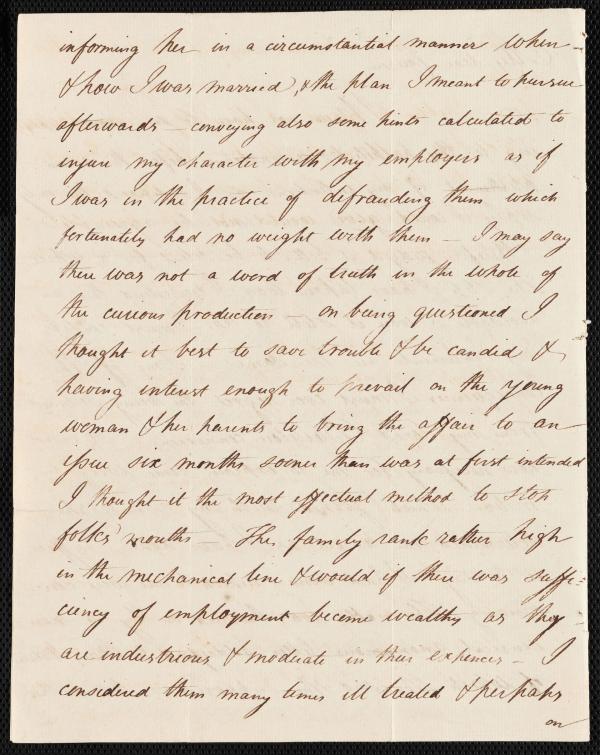 informing her in a circumstantial manner when
& how I was married, & the plan I meant to pursue
afterwards – conveying also some hints calculated to
injure my character with my employers as if
I was in the practice of defrauding them which
fortunately had no weight with them – I may say
there was not a word of truth in the whole of
the curious production – on being questioned I
thought it best to save trouble & be candid &
having interest enough to prevail on the young
woman & her parents to bring the affair to an
issue six months sooner than was at first intended
I thought it the most effectual method to stop
folks' mouths – The family rank rather high
in the mechanical line & would if there was suffi=
ciency of employment become wealthy as they
are industrious & moderate in their expences – I
considered them many times ill treated & perhaps
on